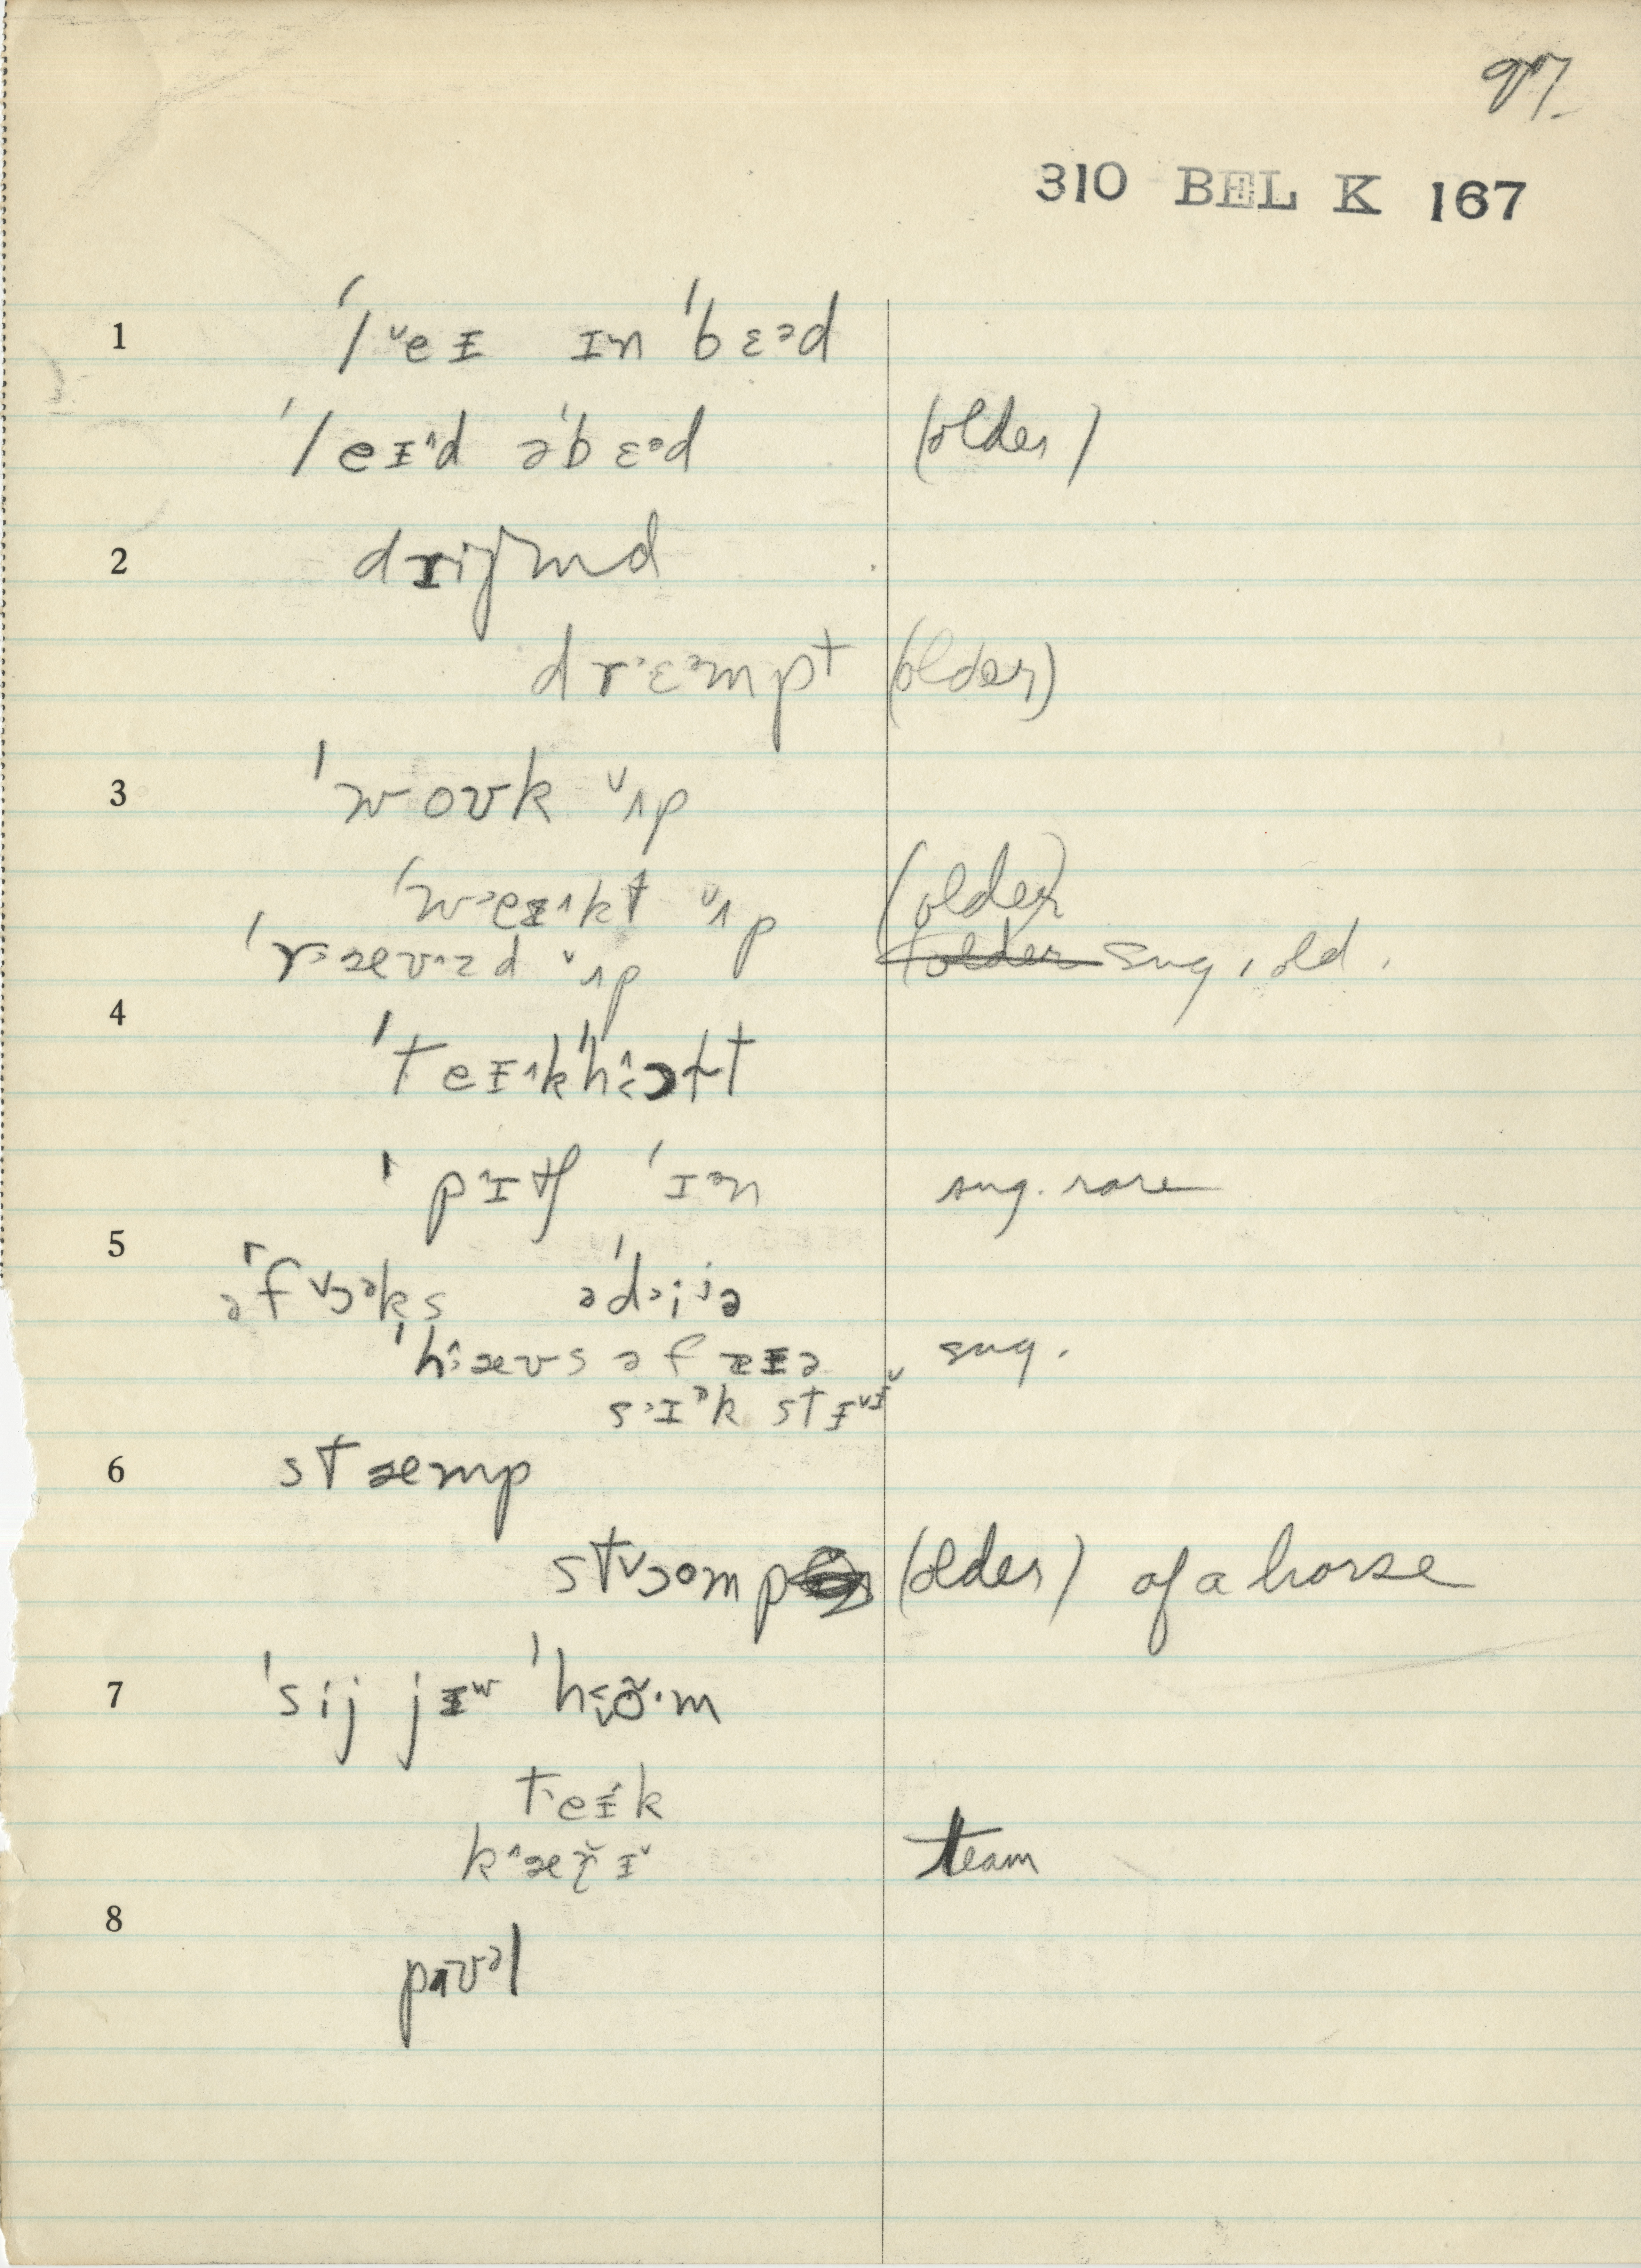 97.
310 BEL K 167
1 ˈlˇeɪ ɪn ˈbɛᵊd
ˈleɪ^d əˈbɛᵊd (older)
2 drijmd
dr˃ɛᵊmpt (older)
3 ˈwoʊk ˇʌp
ˈw˃eɪ^kt ˇʌp (older)
ˈr˃æʊ^zd ˇʌp (older sug, old.
4
ˈteɪ^kˈhɔɫt
ˈpɪtʃ ˈɪᵊn sug. rare
5
əˈfˇɔᵊks əˈd˃iʲə
ˈhæʊs əf zɪə sug.
s˃ɪᵊk stɪˇɪˇ
6 stæmp
stˇɔᵒmp (older) of a horse
7 ˈsij jɪʷ ˈhõˑm
teɪk
k^æɽ̆ɪˇ team
8
paʊᵊl